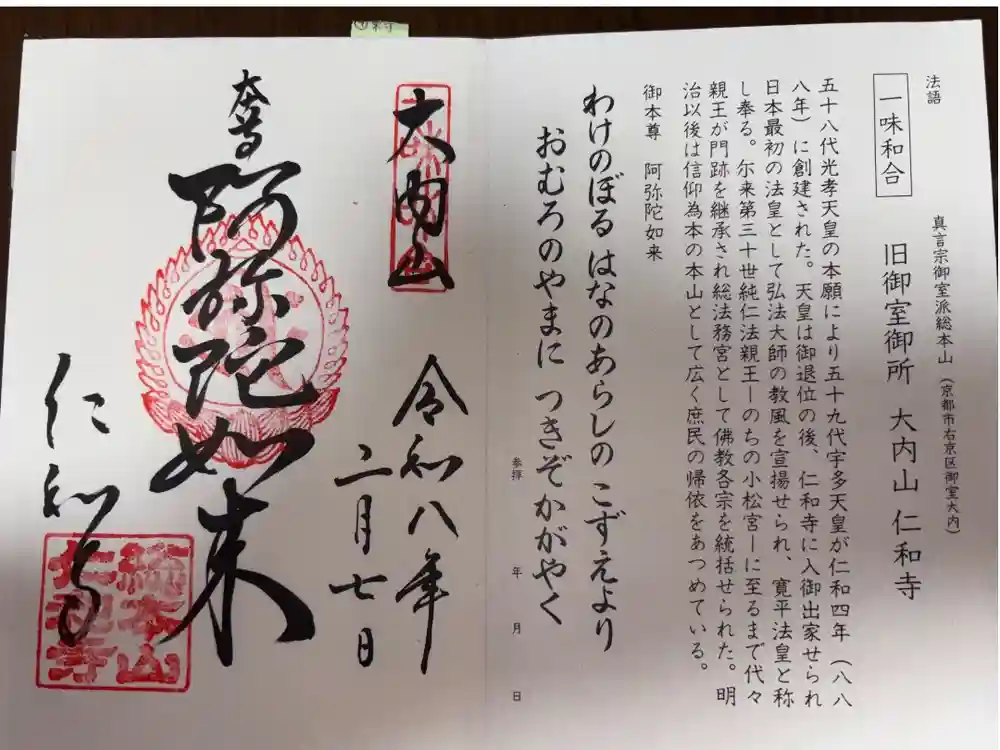 法語
一味和合
真言宗御室派総本山（京都市右京区御室大内）
旧御室御所　大内山　仁和寺
五十八代光孝天皇の本願により五十九代宇多天皇が仁和四年（八八
八年）に創建された。天皇は御退位の後、仁和寺に入御出家せられ
日本最初の法皇として弘法大師の教風を宣揚せられ、寛平法皇と称
し奉る。尓来第三十世純仁法親王ーのちの小松宮ーに至るまで代々
親王が門跡を継承され総法務宮として佛教各宗を統括せられた。明
治以後は信仰為本の本山として広く庶民の帰依をあつめている。
御本尊　阿弥陀如来
わけのぼる はなのあらしの こずえより
おむろのやまに つきぞかがやく
参拝　年　月　日
大内山
令和八年
二月七日
本尊
阿弥陀如来
仁和寺
総本山
仁和寺